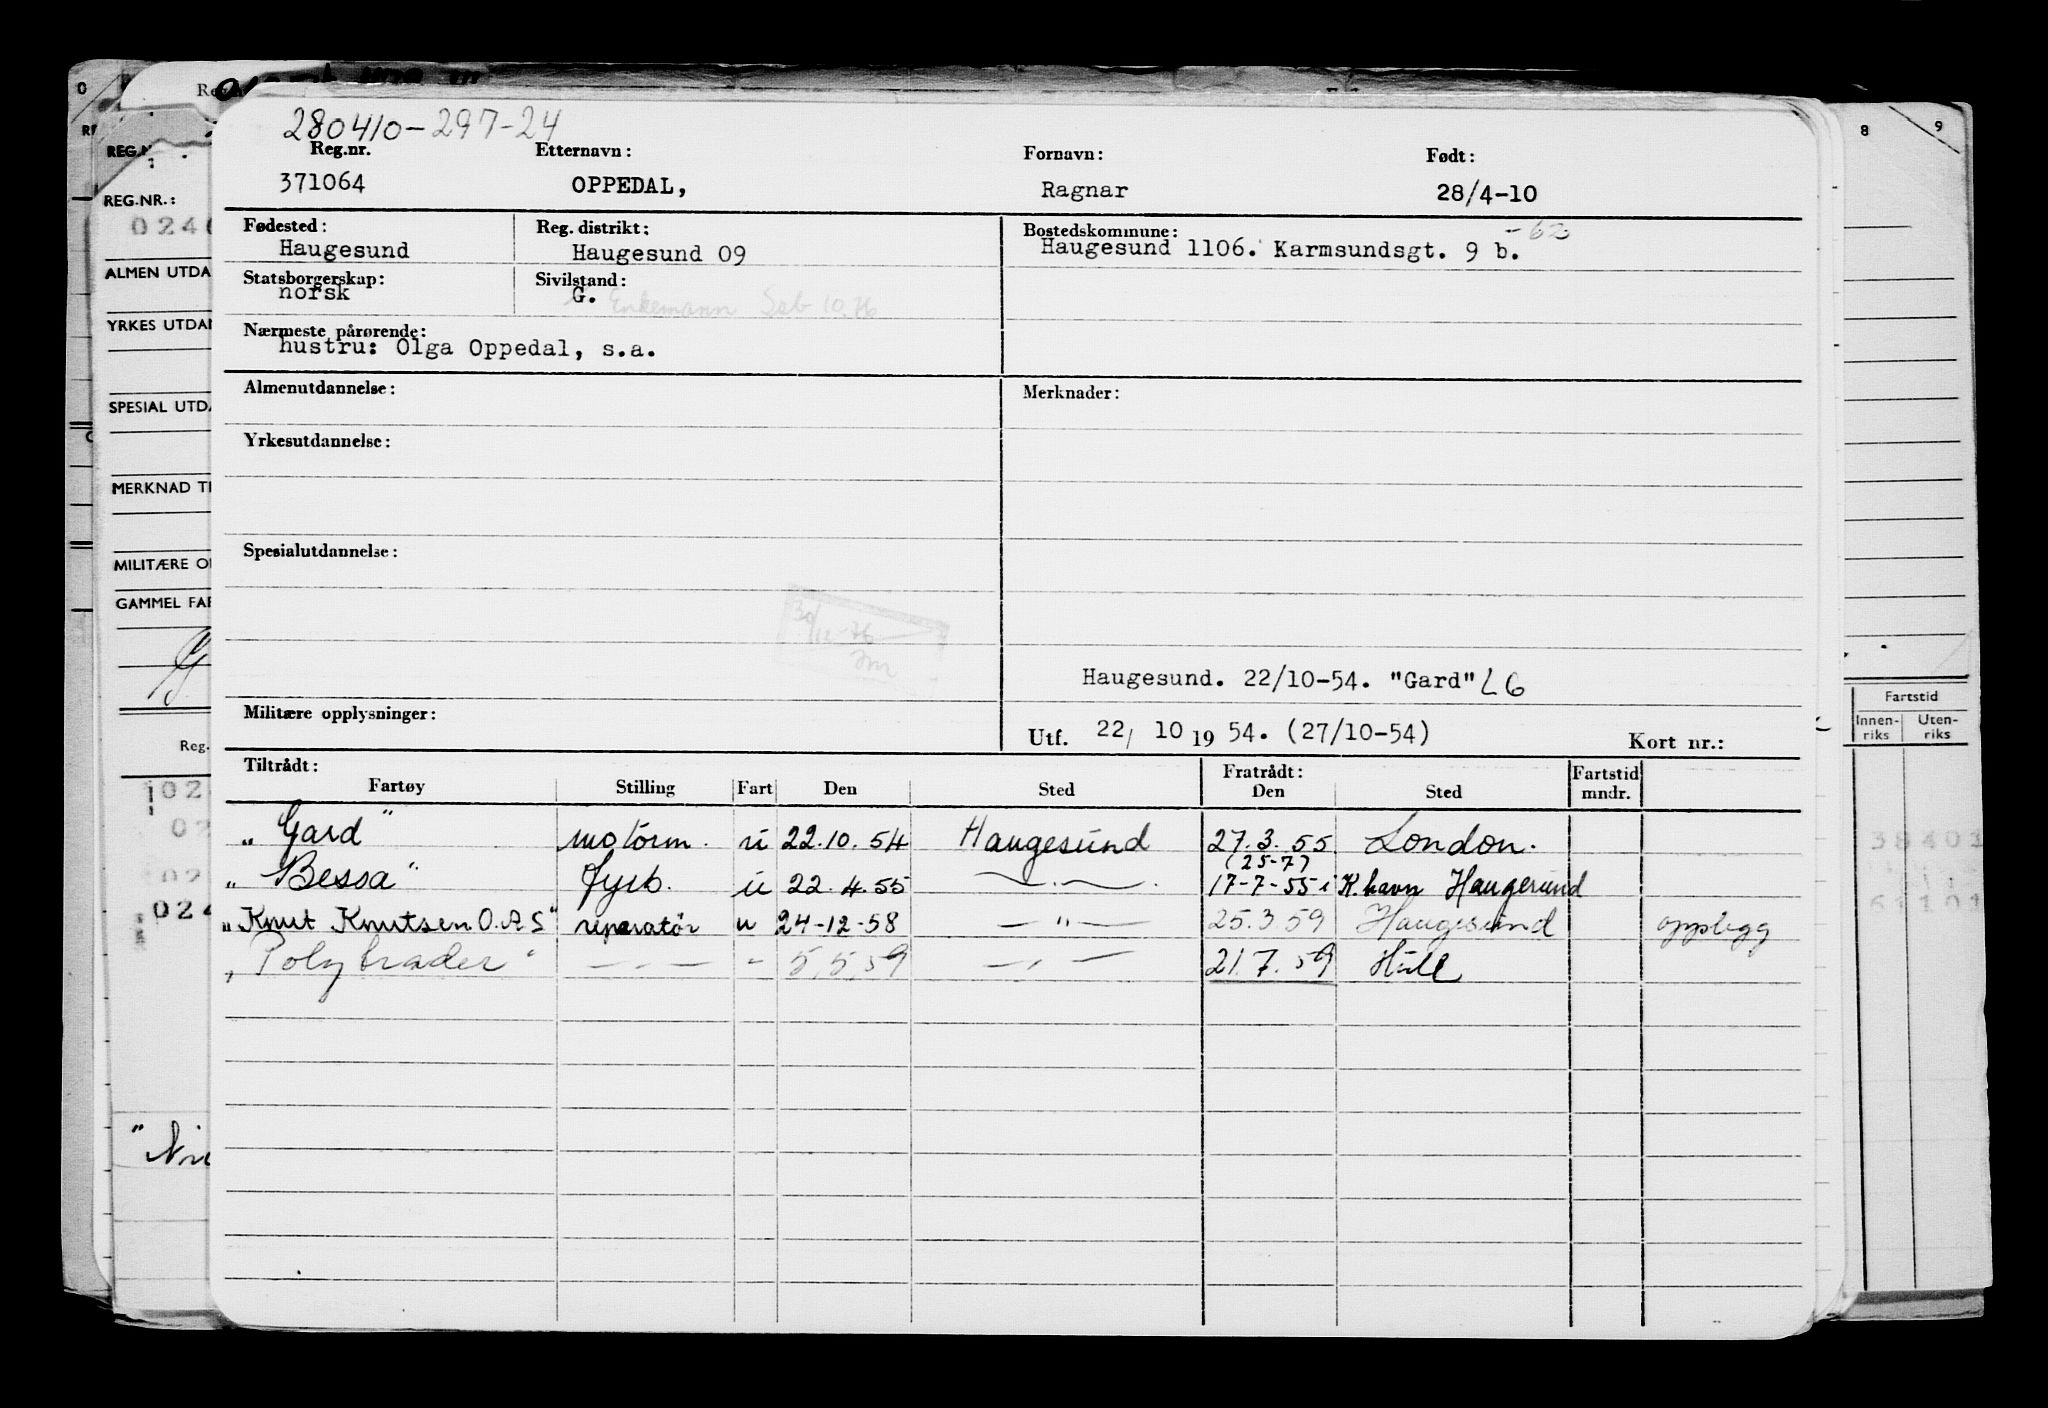 280410-297-24
Reg.nr. Etternavn: Fornavn: Født:
371064 OPPEDAL, Ragnar 28/4-10
Fødested: Reg. distrikt: Bostedskommune: -62
Haugesund Haugesund 09 Haugesund 1106. Karmsundsgt. 9 b.
Statsborgerskap: Sivilstand:
norsk G. Enkemann
Nærmeste pårørende:
hustru: Olga Oppedal, s.a.
Almenutdannelse: Merknader:
Yrkesutdannelse:
Spesialutdannelse:
30/12-76
Haugesund. 22/10-54. "Gard" L6
Militære opplysninger: Utf. 22/ 10 19 54. (27/10-54) Kort nr.:
Tiltrådt: Fratrådt: Fartstid
Fartøy Stilling Fart Den Sted Den Sted mndr.
„Gard" motorm. u 22.10.54 Haugesund 27.3.55 London.
(25-7)
„Bessa" fyrb. u 22.4.55 — " — 17-7-55 K.havn Haugesund
„Knut Knutsen O.A.S" reparatør u 24-12-58 — " — 25.3.59 Haugesund opplegg
„Polytrader" — " — " 5.5.59 — " — 21.7.59 Hull
REG.NR.:
ALMEN UTDA
YRKES UTDAN
SPESIAL UTDA
MERKNAD TI
MILITÆRE O
GAMMEL FAR
Reg.
024
8 9
Fartstid
Innen-riks Uten-riks
38401
61101